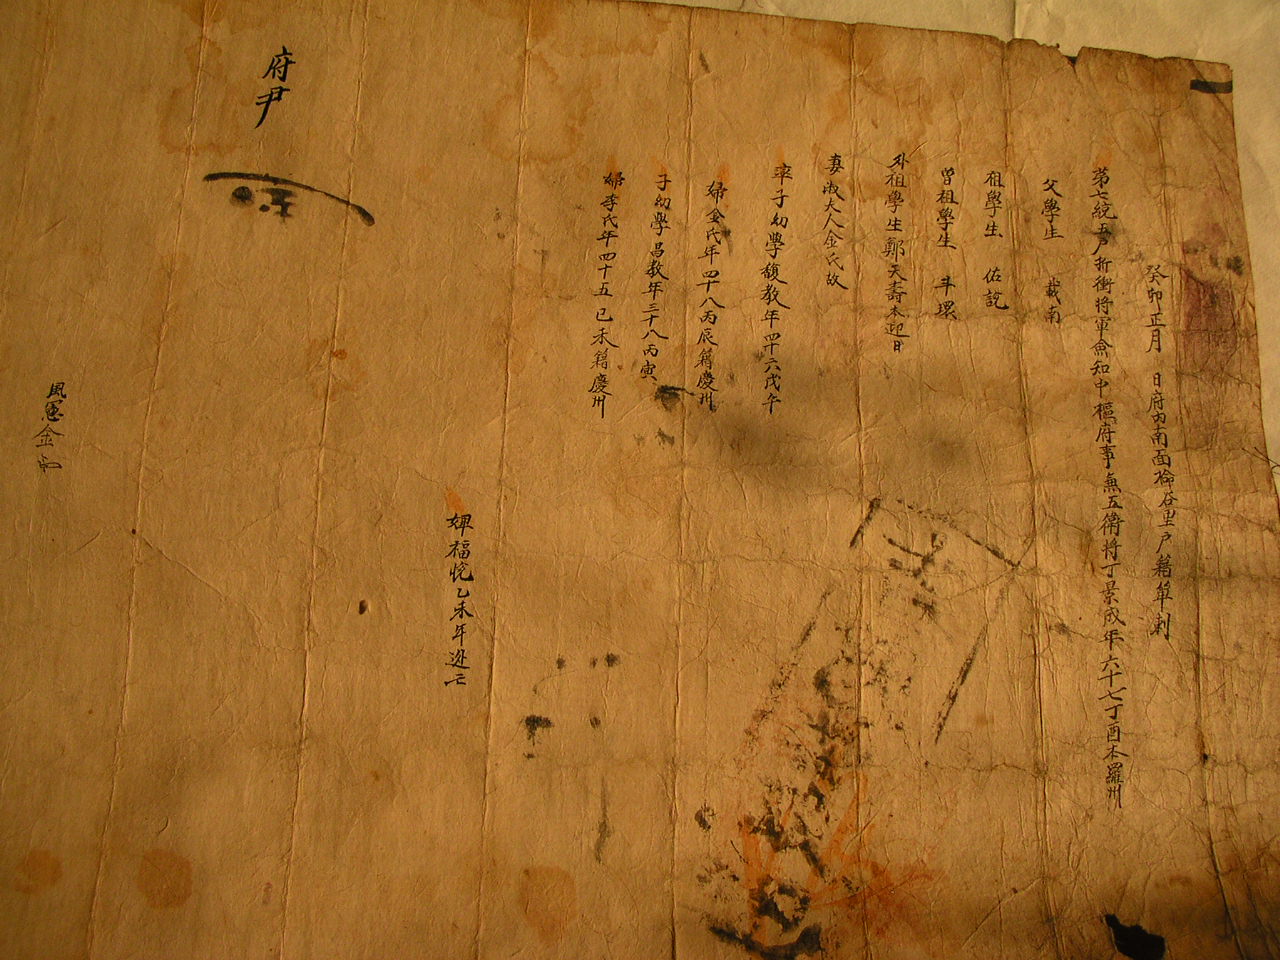 癸卯正月　日府內南面　谷里戶籍單刺
第七統五戶折衝將軍僉知中樞府事兼五衛將丁景成年六十七丁酉本羅州
父學生　載南
祖學生　佑說
曾祖學生　斗環
外祖學生鄭天壽本迎日
妻淑夫人金氏故
率子幼學馥教年四十六戊午
婦金氏年四十八丙辰籍慶州
子幼學昌教年三十八丙寅
婦李氏年四十五己未籍慶州
婢福悅乙未年逃亡
府尹
風憲金